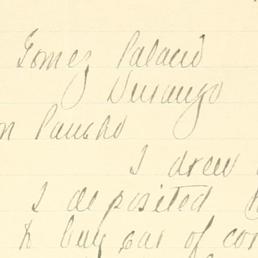 Gomez Palacio
Durango
n Pancho
I drew
I deposited
to buy car of cor